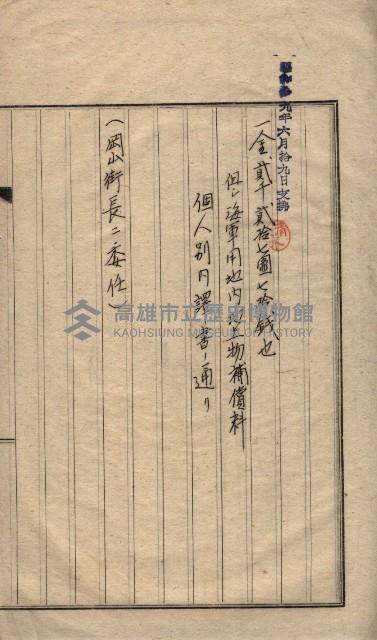 九年六月拾九日支拂
一金、貳千貳拾七圓七拾錢也
但シ海軍用地内地上物補償料
個人別内譯書ノ通リ
(岡山街長ニ委任)
高雄市立歷史博物館
KAOHSIUNG MUSEUM OF HISTORY